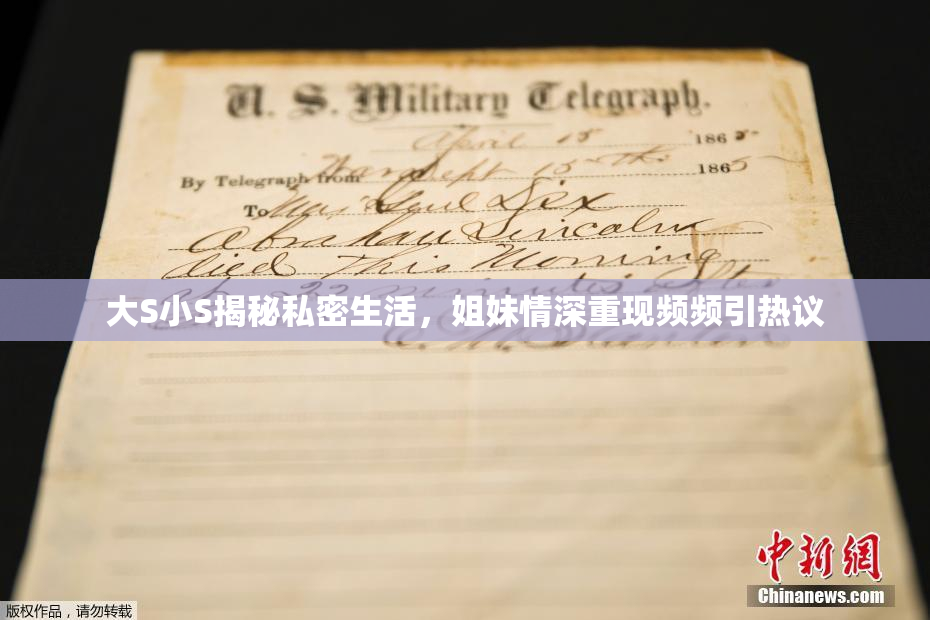 U. S. Military Telegraph.
April 15 1865
By Telegraph from War Dept 15th 1865
To Maj Genl Dix
Abraham Lincoln
died This Morning
at 22 minutes after
大S小S揭秘私密生活，姐妹情深重现频频引热议
E. M. Stanton
中新网
Chinanews.com
版权作品，请勿转载